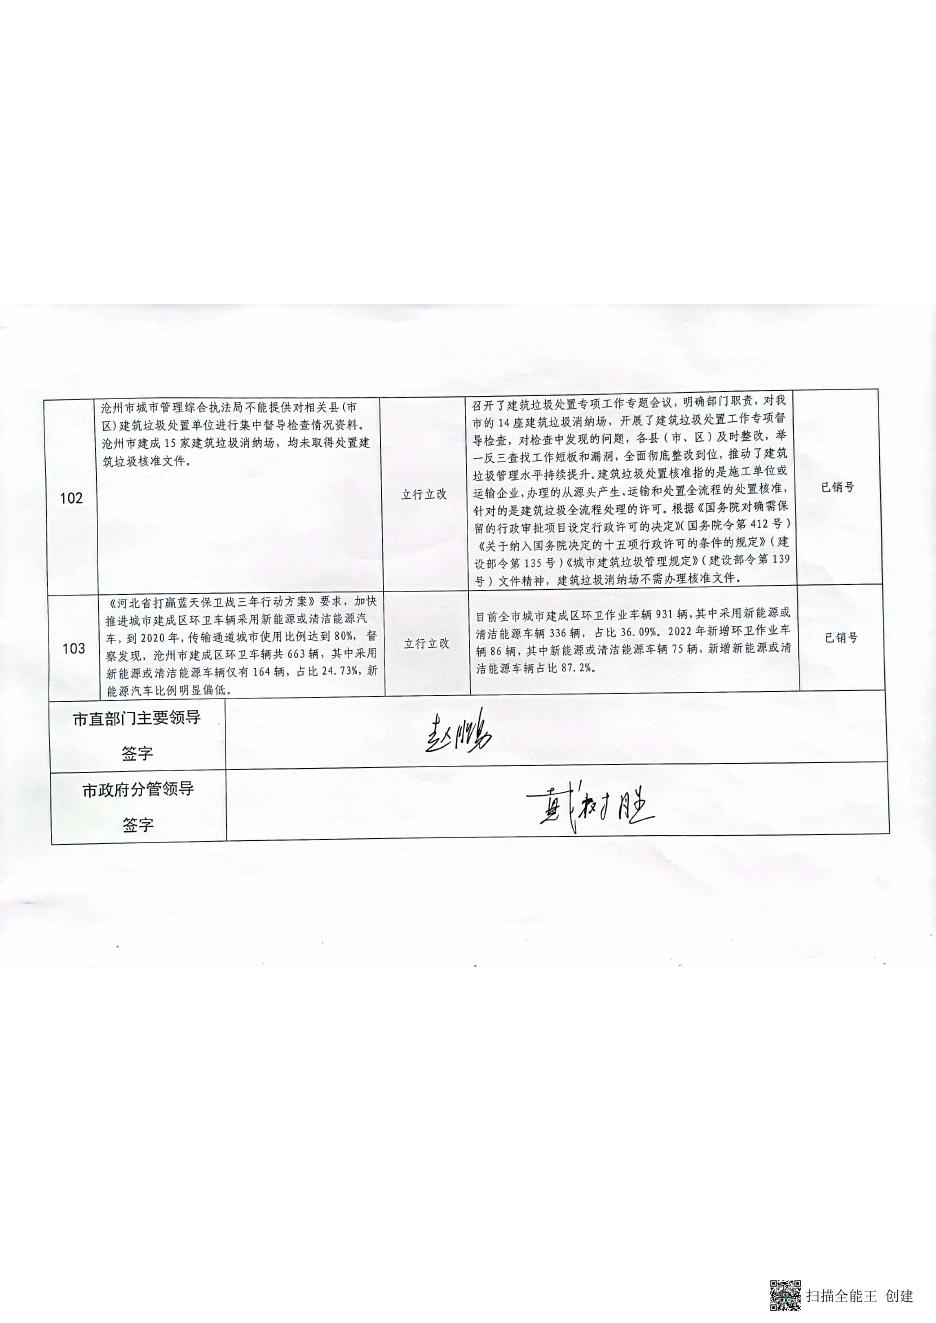 102
沧州市城市管理综合执法局不能提供对相关县(市
区)建筑垃圾处置单位进行集中督导检查情况资料。
沧州市建成15家建筑垃圾消纳场，均未取得处置建
筑垃圾核准文件。
立行立改
召开了建筑垃圾处置专项工作专题会议，明确部门职责，对我
市的14座建筑垃圾消纳场，开展了建筑垃圾处置工作专项督
导检查，对检查中发现的问题，各县（市、区）及时整改，举
一反三查找工作短板和漏洞，全面彻底整改到位，推动了建筑
垃圾管理水平持续提升。建筑垃圾处置核准指的是施工单位或
运输企业，办理的从源头产生、运输和处置全流程的处置核准，
针对的是建筑垃圾全流程处理的许可。根据《国务院对确需保
留的行政审批项目设定行政许可的决定》（国务院令第412号）
《关于纳入国务院决定的十五项行政许可的条件的规定》（建
设部令第135号）《城市建筑垃圾管理规定》（建设部令第139
号）文件精神，建筑垃圾消纳场不需办理核准文件。
已销号
103
《河北省打赢蓝天保卫战三年行动方案》要求，加快
推进城市建成区环卫车辆采用新能源或清洁能源汽
车，到2020年，传输通道城市使用比例达到80%，督
察发现，沧州市建成区环卫车辆共663辆，其中采用
新能源或清洁能源车辆仅有164辆，占比24.73%，新
能源汽车比例明显偏低。
立行立改
目前全市城市建成区环卫作业车辆931辆，其中采用新能源或
清洁能源车辆336辆，占比36.09%。2022年新增环卫作业车
辆86辆，其中新能源或清洁能源车辆75辆，新增新能源或清
洁能源车辆占比87.2%。
已销号
市直部门主要领导
签字
赵鹏
市政府分管领导
签字
戴树胜
扫描全能王 创建